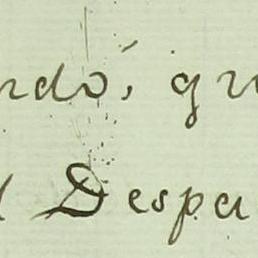 ndó, qu
l Despa